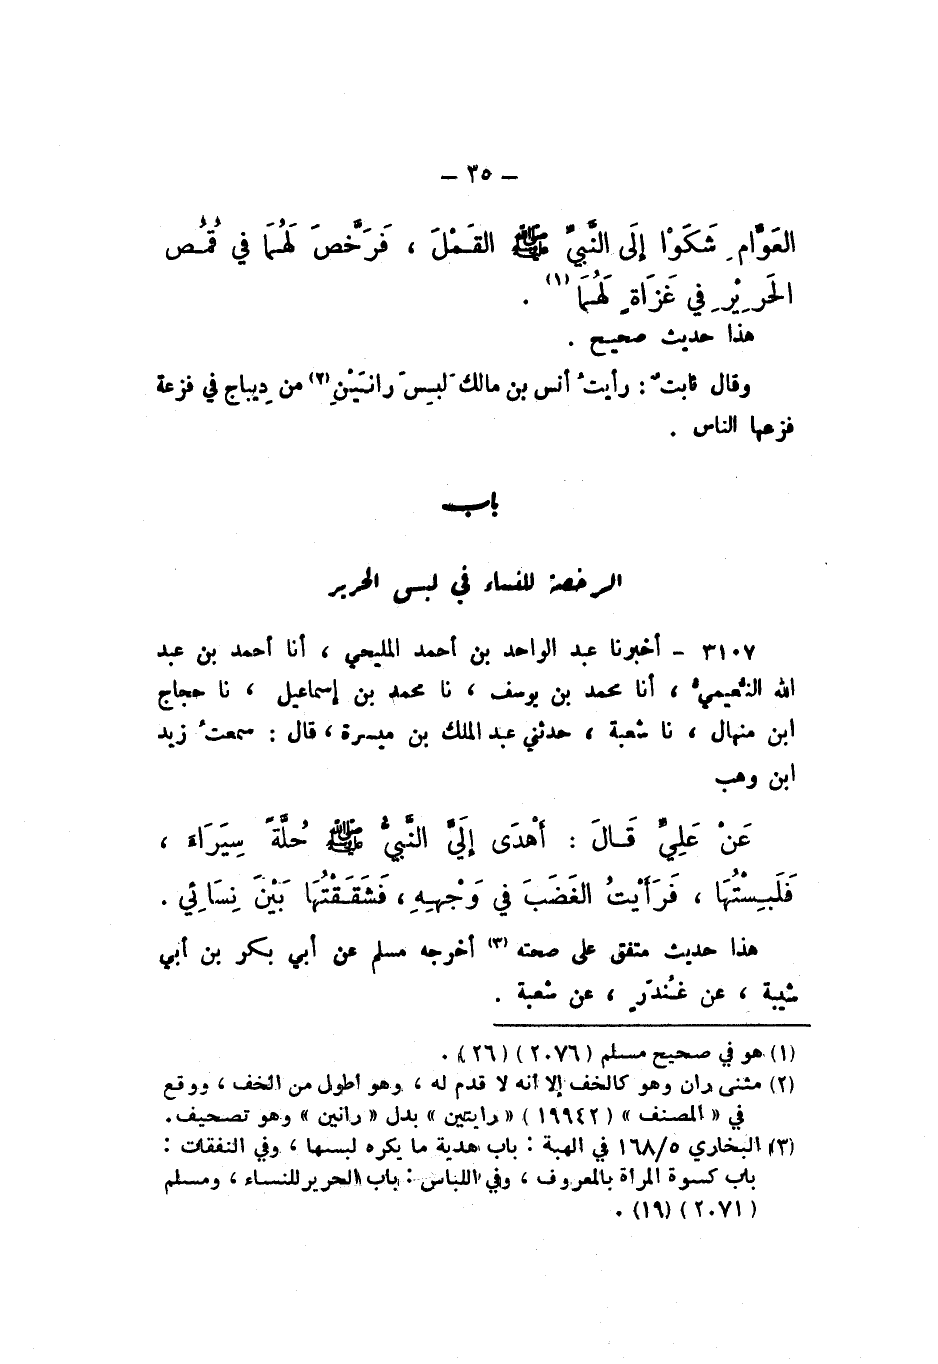 – ٣٥ –
العَوَّامِ شَكَوْا إِلَى النَّبِيِّ ﷺ القَمْلَ ، فَرَخَّصَ لَهُمَا فِي قُمُصِ
الحَرِيْرِ فِي غَزَاةٍ لَهُمَا (١) .
هذا حديث صحيح .
وقال ثابتٌ : رأيتُ أنس بن مالك لَبِسَ رانَيْنِ (٢) من دِيباج في فزعة
فزعها الناس .
باب
الرخصة للنساء في لبس الحرير
٣١٠٧ – أخبرنا عبد الواحد بن أحمد المليحي ، أنا أحمد بن عبد
الله النُّعيميُّ ، أنا محمد بن يوسف ، نا محمد بن إسماعيل ، نا حجاج
ابن منهال ، نا شعبة ، حدثني عبد الملك بن ميسرة ، قال : سمعتُ زيد
ابن وهب
عَنْ عَلِيٍّ قَالَ : أَهْدَى إِلَيَّ النَّبِيُّ ﷺ حُلَّةً سِيَرَاءَ ،
فَلَبِسْتُهَا ، فَرَأَيْتُ الغَضَبَ فِي وَجْهِهِ ، فَشَقَقْتُهَا بَيْنَ نِسَائِي .
هذا حديث متفق على صحته (٣) أخرجه مسلم عن أبي بكر بن أبي
شيبة ، عن غُندَرٍ ، عن شعبة .
(١) هو في صحيح مسلم (٢٠٧٦) (٢٦) .
(٢) مثنى ران وهو كالخف إلا أنه لا قدم له ، وهو أطول من الخف ، ووقع
في « المصنف » (١٩٩٤٢) « رايتين » بدل « رانين » وهو تصحيف .
(٣) البخاري ١٦٨/٥ في الهبة : باب هدية ما يكره لبسها ، وفي النفقات :
باب كسوة المرأة بالمعروف ، وفي اللباس : باب الحرير للنساء ، ومسلم
(٢٠٧١) (١٩) .